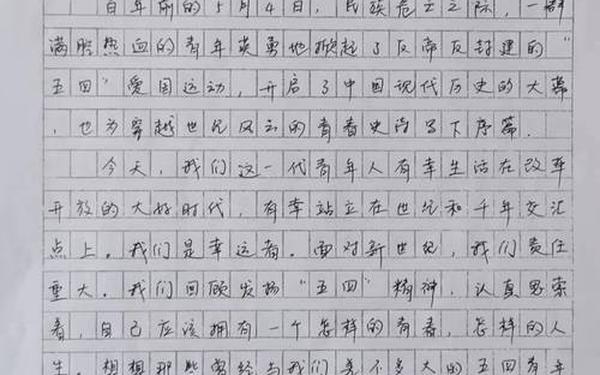 百年前的5月4日，民族危亡之际，一群
满腔热血的青年英勇地掀起了反帝反封建的“
五四”爱国运动，开启了中国现代历史的大幕
，也为穿越世纪风云的青春史诗写下序篇．
今天，我们这一代青年人有幸生活在改革
开放的大好时代，有幸站立在世纪和千年交汇
点上。我们是幸运者。面对新世纪，我们责任
重大。我们回顾发扬“五四”精神，认真思索
着，自己应该拥有一个怎样的青春，怎样的人
生。想想那些曾经与我们差不多大的五四青年